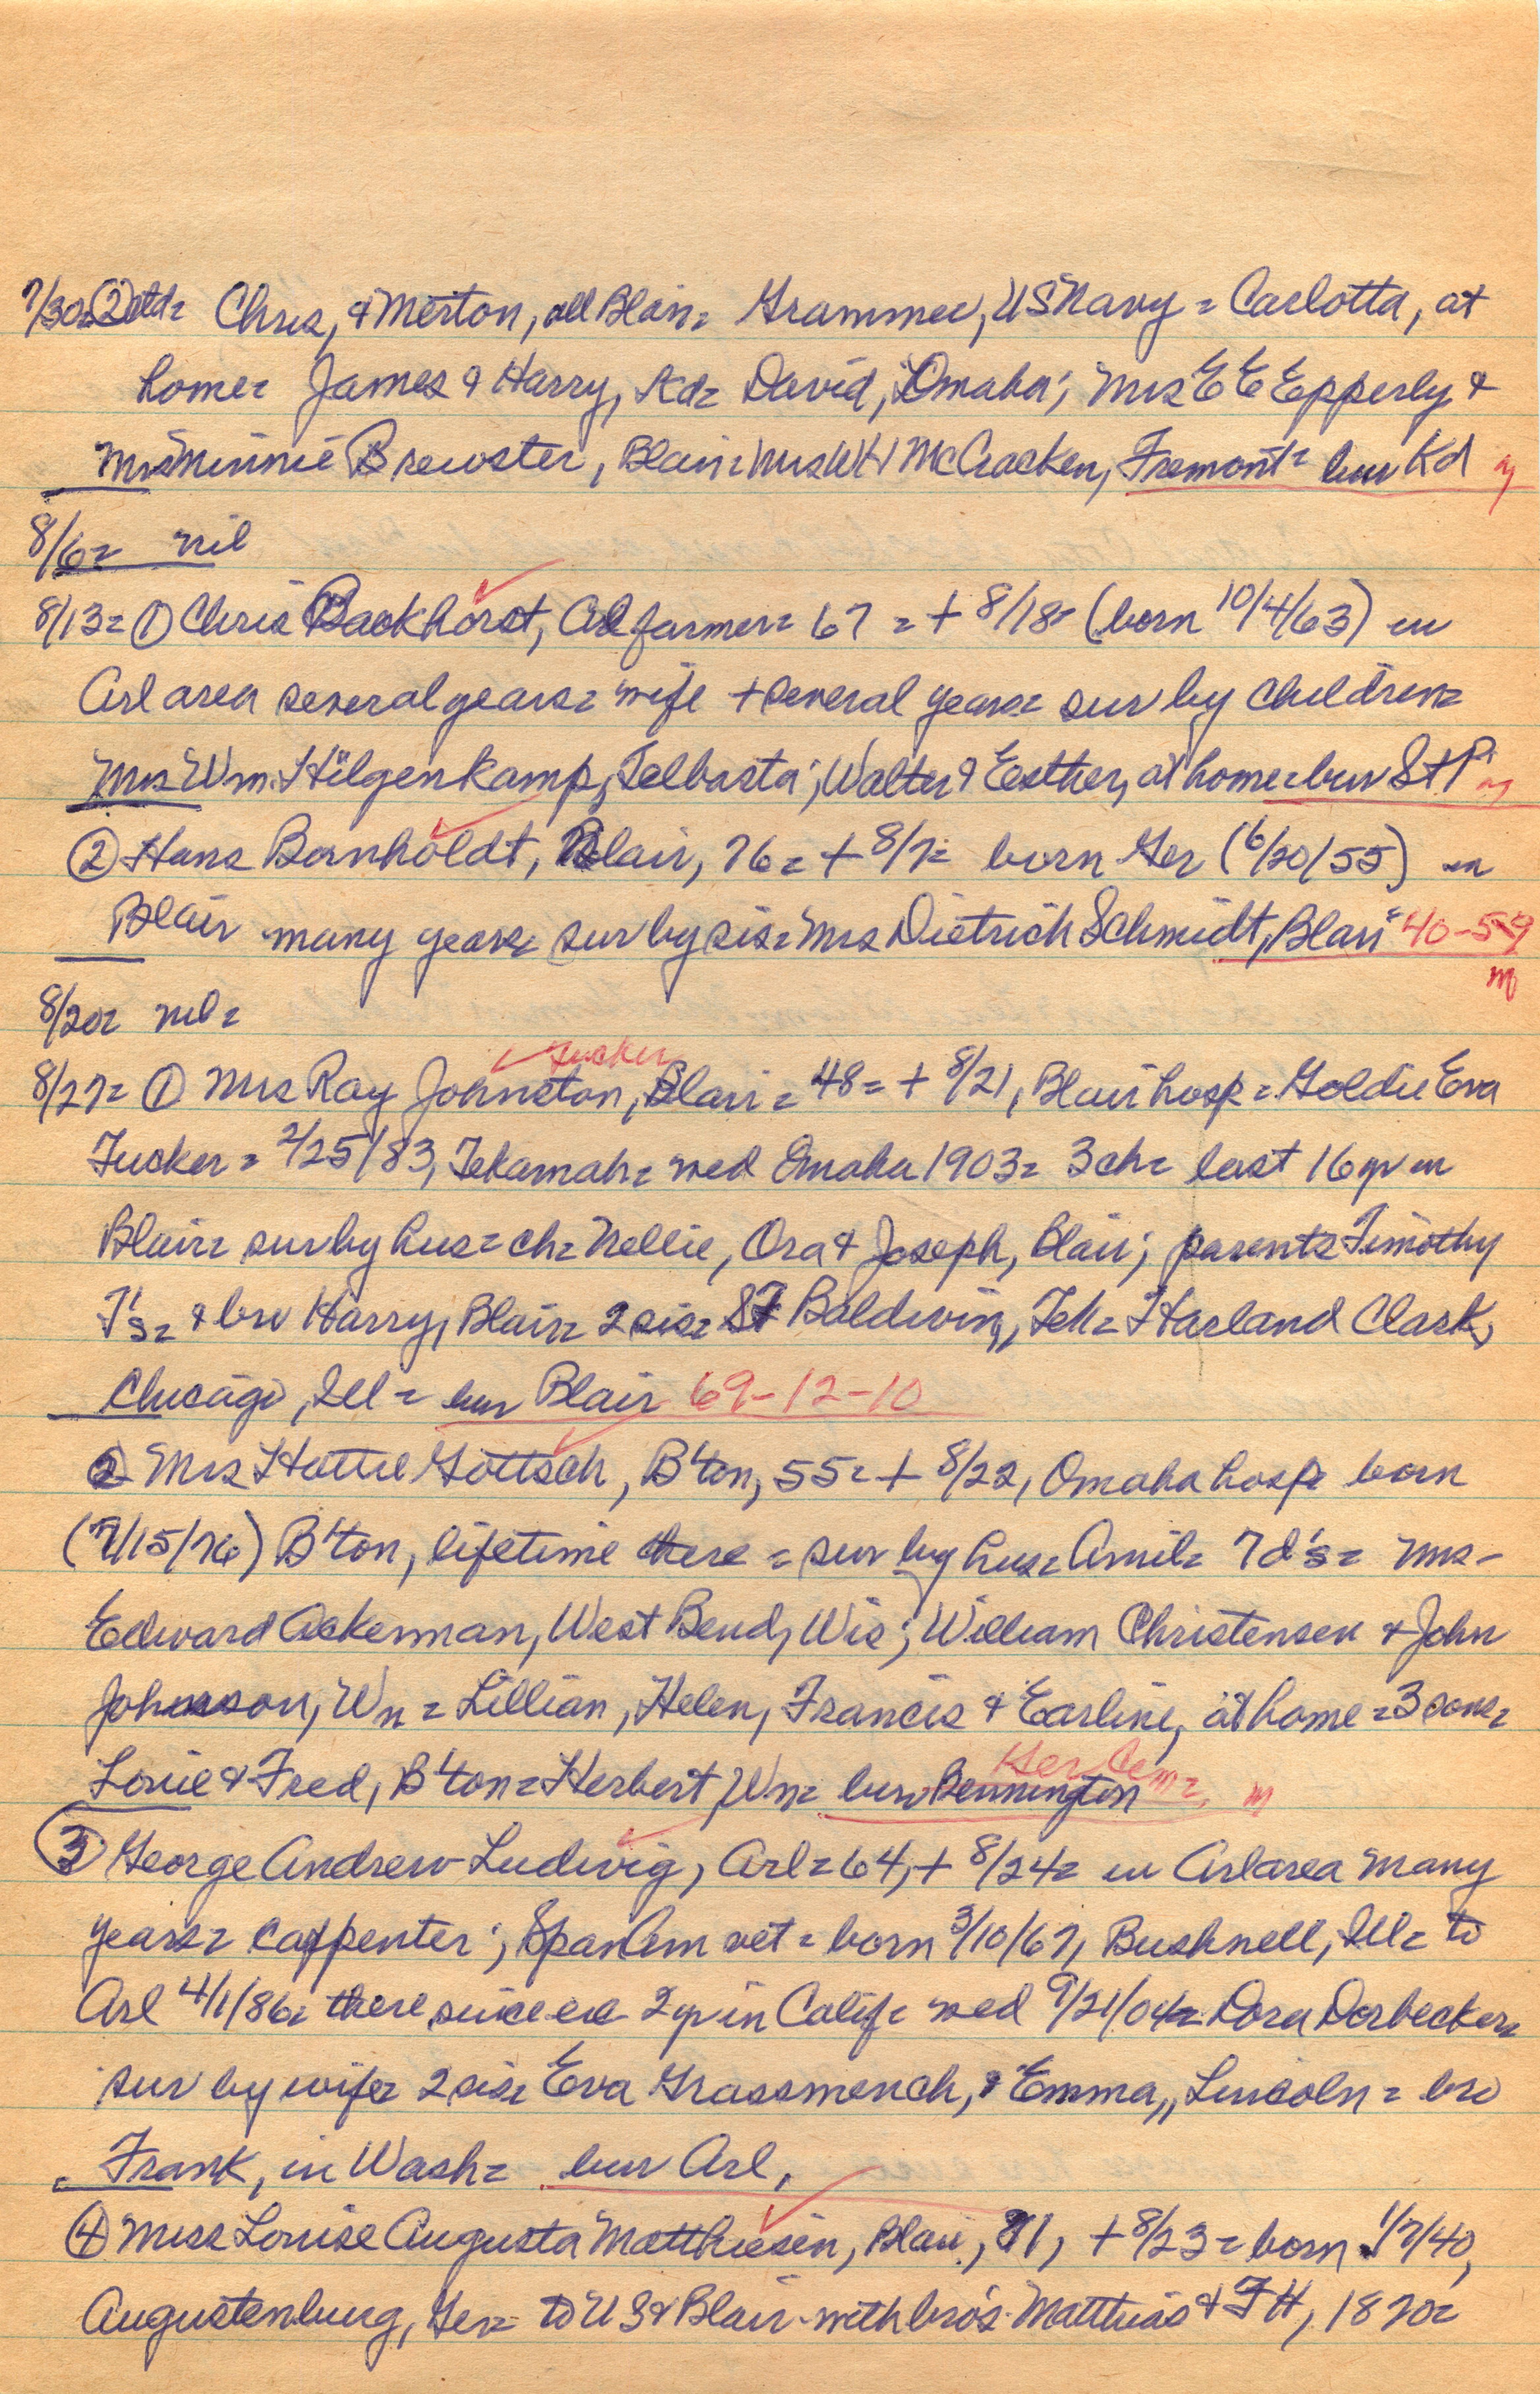 7/30= ② ctd= Chris, & Merton, all Blair= Grammer, US Navy = Carlotta, at
home= James & Harry, Kd= David, Omaha; Mrs E E Epperly &
Mrs Minnie Brewster, Blair= Mrs WH McCracken, Fremont= bur Kd
8/6= nil
8/13= ① Chris Backhorst, Arl farmer= 67 = + 8/18= (born 10/4/63) in
Arl area several years= wife + several years= sur by children=
Mrs Wm. Hilgenkamp, Telbasta; Walter & Esther, at home= bur St P
② Hans Bornholdt, Blair, 76= + 8/7= born Ger (6/20/55) in
Blair many years= sur by sis= Mrs Dietrich Schmidt, Blair= 40-59
m
8/20= nil=
Tucker
8/27= ① Mrs Ray Johnston, Blair= 48= + 8/21, Blair hosp= Goldie Eva
Tucker= 2/25/83, Tekamah= wed Omaha 1903= 3ch= last 16 yr in
Blair= sur by hus= ch= Nellie, Ora & Joseph, Blair; parents Timothy
T's= & bro Harry, Blair= 2 sis= Baldwin, Tek= Harland Clark,
Chicago, Ill= bur Blair 69-12-10
② Mrs Hattie Gottsch, B'ton, 55= + 8/22, Omaha hosp= born
(7/15/76) B'ton, lifetime there = sur by hus= Amil= 7 d's= Mrs-
Edward Ackerman, West Bend, Wis; William Christensen & John
Johnson, Wn= Lillian, Helen, Francis & Earline, at home= 3 sons=
Ger Cem=
Louie & Fred, B'ton= Herbert, Wn= bur Bennington m
③ George Andrew Ludwig, Arl= 64, + 8/24= in Arl area many
years= carpenter; SpanAm vet= born 3/10/67, Bushnell, Ill= to
Arl 4/1/86= there since exc 2 yr in Calif= wed 9/21/04= Dora Dorbecker=
sur by wife= 2 sis= Eva Grassmench, & Emma,, Lincoln= bro
Frank, in Wash= bur Arl,
④ Miss Louise Augusta Matthiesen, Blair, 81, + 8/23= born 1/7/40,
Augustenburg, Ger= to US & Blair with bro's Matthias & F H, 1870=